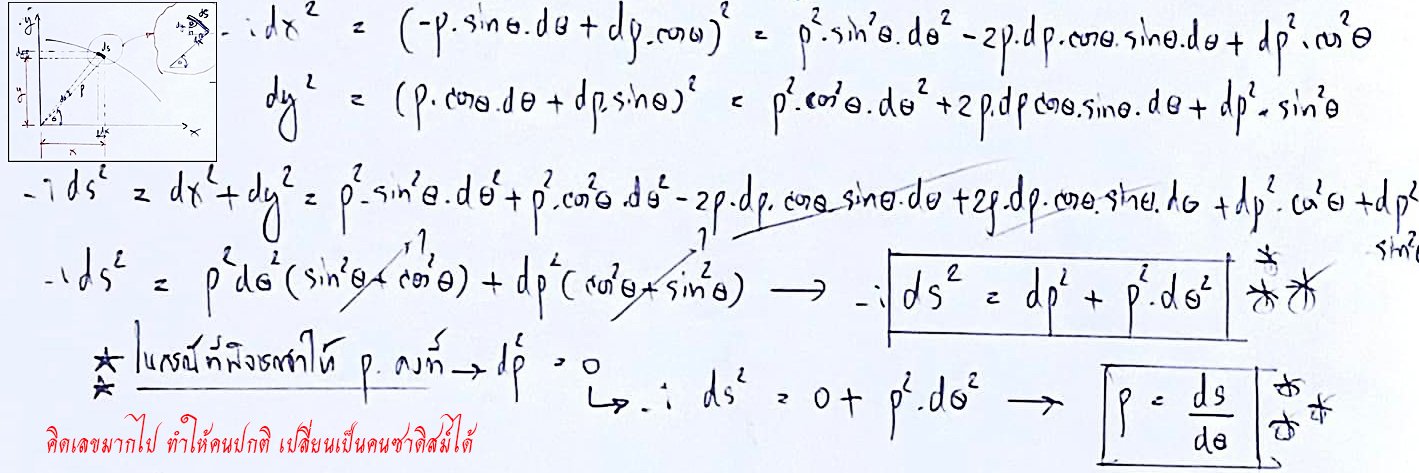 ∴ dx² = (-ρ.sinθ.dθ + dρ.cosθ)² = ρ².sin²θ.dθ² - 2ρ.dρ.cosθ.sinθ.dθ + dρ².cos²θ
dy² = (ρ.cosθ.dθ + dρ.sinθ)² = ρ².cos²θ.dθ² + 2ρ.dρ cosθ.sinθ.dθ + dρ².sin²θ
∴ ds² = dx² + dy² = ρ².sin²θ.dθ² + ρ².cos²θ.dθ² - 2ρ.dρ.cosθ sinθ.dθ + 2ρ.dρ.cosθ.sinθ.dθ + dρ².cos²θ + dρ² sin²θ
∴ ds² = ρ²dθ²(sin²θ + cos²θ) + dρ²(cos²θ + sin²θ) → ∴ ds² = dρ² + ρ².dθ²
ในกรณีที่พิจารณาให้ ρ. คงที่ → dρ² = 0
↳ ∴ ds² = 0 + ρ².dθ² → ρ = ds/dθ
คิดเลขมากไป ทำให้คนปกติ เปลี่ยนเป็นคนซาดิสม์ได้
y
ds
ρ
x
y
x